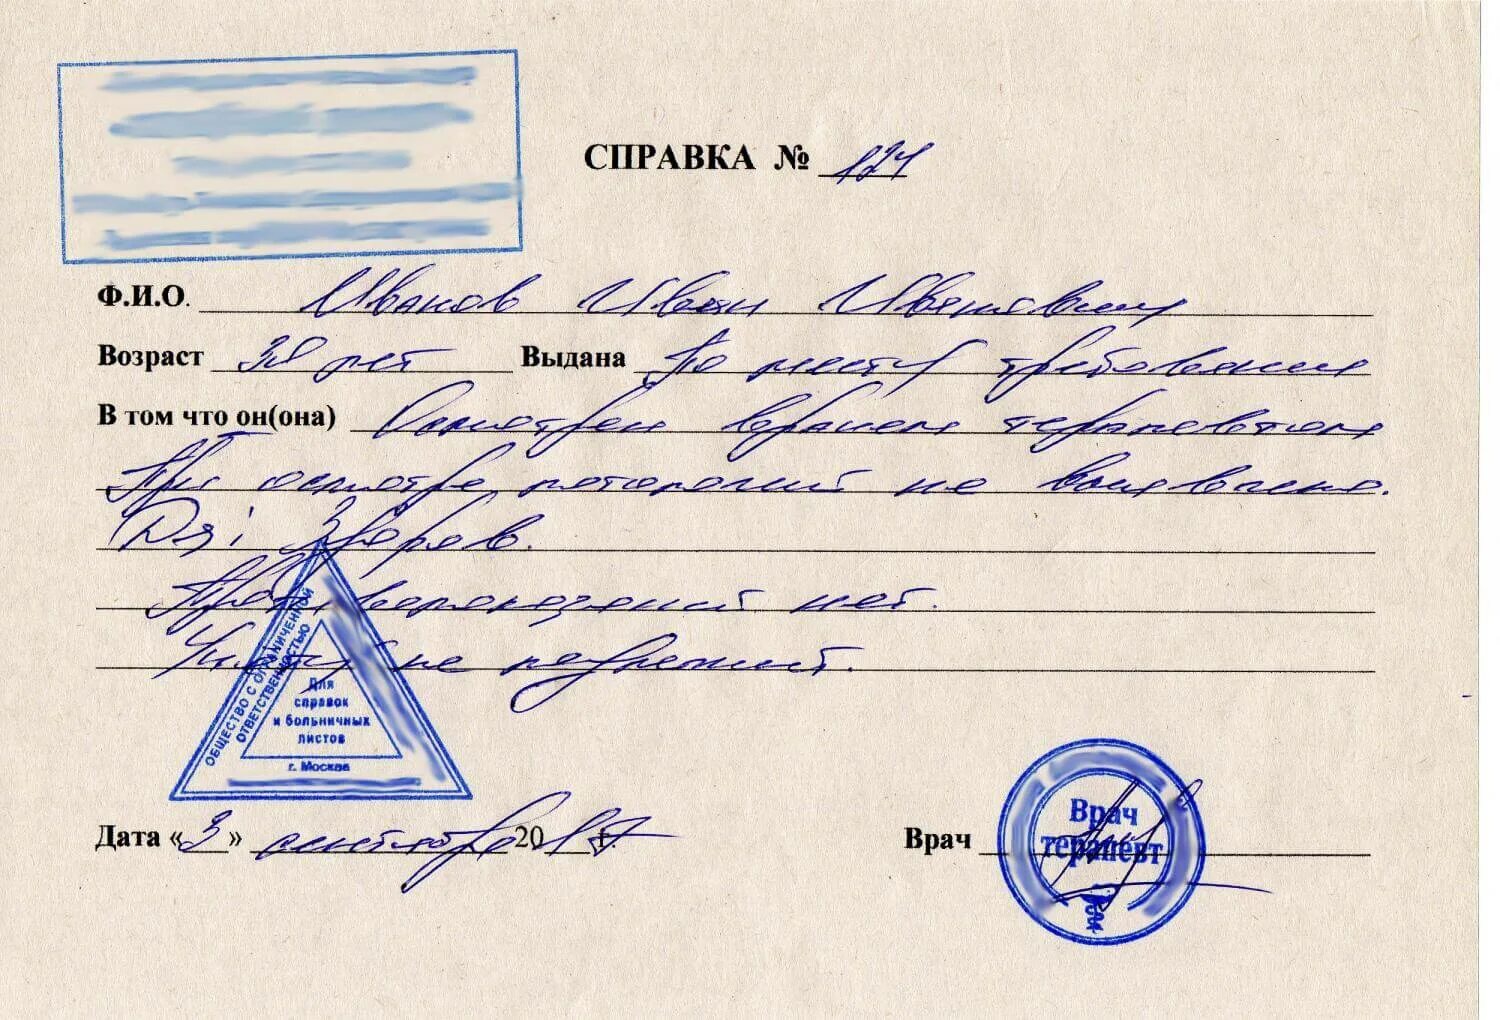 СПРАВКА № 124
Ф.И.О. Иванов Иван Иванович
Возраст лет Выдана По месту требования
В том что он(она) Осмотрен врачом терапевтом
При осмотре патологий не выявлено.
Ds: Здоров.
Противопоказаний нет.
не разрешит.
ОБЩЕСТВО С ОГРАНИЧЕННОЙ
ОТВЕТСТВЕННОСТЬЮ
Для
справок
и больничных
листов
г. Москва
Дата «3» сентября 2017 г. Врач
Врач
терапевт